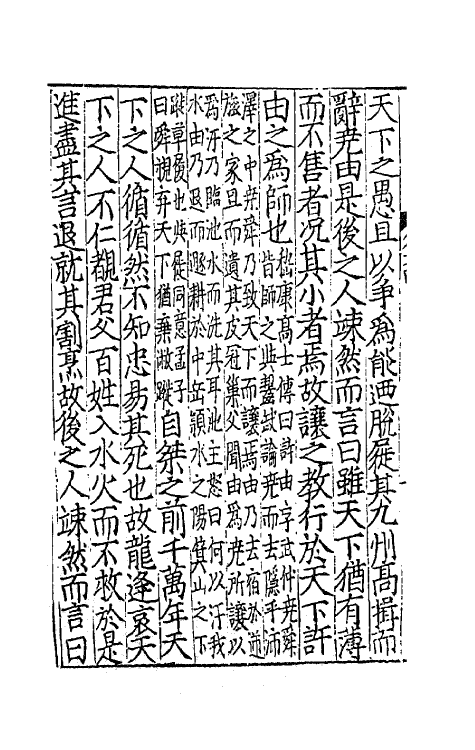 天下之愚且以爭為能迺脫屣其九州髙揖而
辭堯由是後之人竦然而言曰雖天下猶有薄
而不售者况其小者焉故讓之教行於天下許
由之為師也
嵇康髙士傳曰許由字武仲堯舜
皆師之與齧缺論堯而去隱乎沛
澤之中堯舜乃致天下而讓焉由乃去宿於逆
旅之家旦而遺其皮冠巢父聞由為堯所讓以
為汙乃臨池水而洗其耳池主怒曰何以汙我
水由乃退而遯耕於中岳潁水之陽箕山之下
蹝草履也與屣同意孟子
曰舜視弃天下猶棄敝蹝
自桀之前千萬年天
下之人循循然不知忠易其死也故龍逢哀天
下之人不仁覩君父百姓入水火而不救於是
進盡其言退就其割烹故後之人竦然而言曰